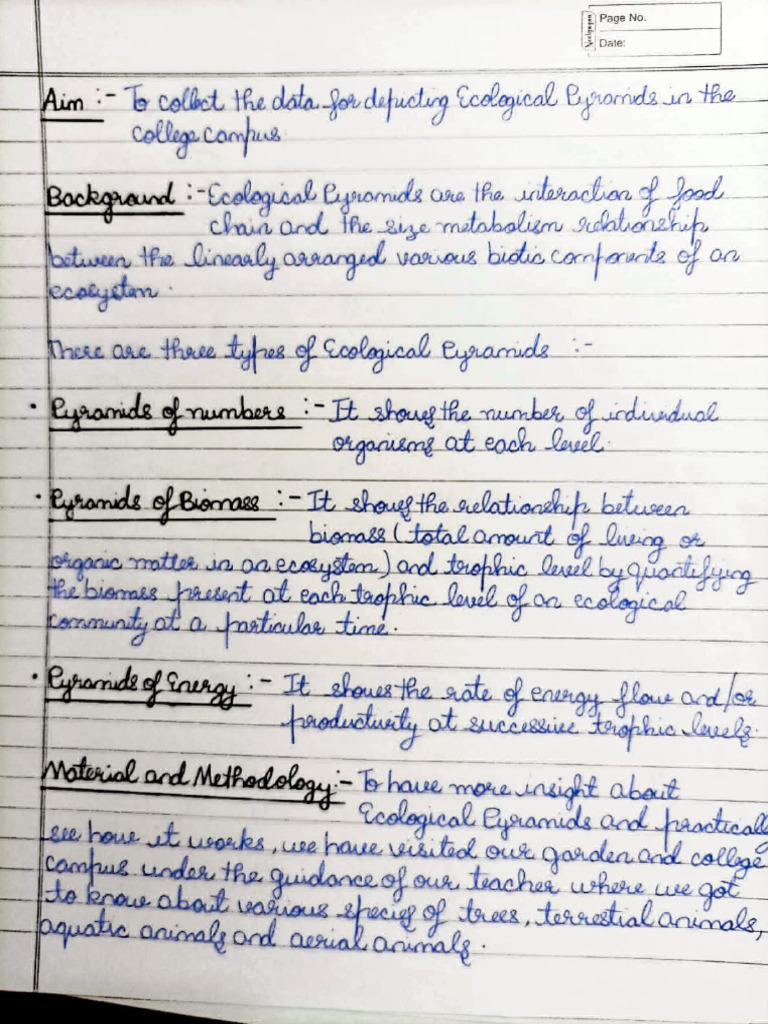 Page No.
Date:
Aim :- To collect the data for depicting Ecological Pyramids in the
college campus
Background :- Ecological Pyramids are the interaction of food
chain and the size metabolism relationship
between the linearly arranged various biotic components of an
ecosystem.
There are three types of Ecological Pyramids :-
• Pyramids of numbers :- It shows the number of individual
organisms at each level.
• Pyramids of Biomass :- It shows the relationship between
biomass (total amount of living or
organic matter in an ecosystem) and trophic level by quantifying
the biomass present at each trophic level of an ecological
community at a particular time.
• Pyramids of Energy :- It shows the rate of energy flow and/or
productivity at successive trophic levels.
Material and Methodology :- To have more insight about
Ecological Pyramids and practically
see how it works, we have visited our garden and college
campus under the guidance of our teacher where we got
to know about various species of trees, terrestial animals,
aquatic animals and aerial animals.